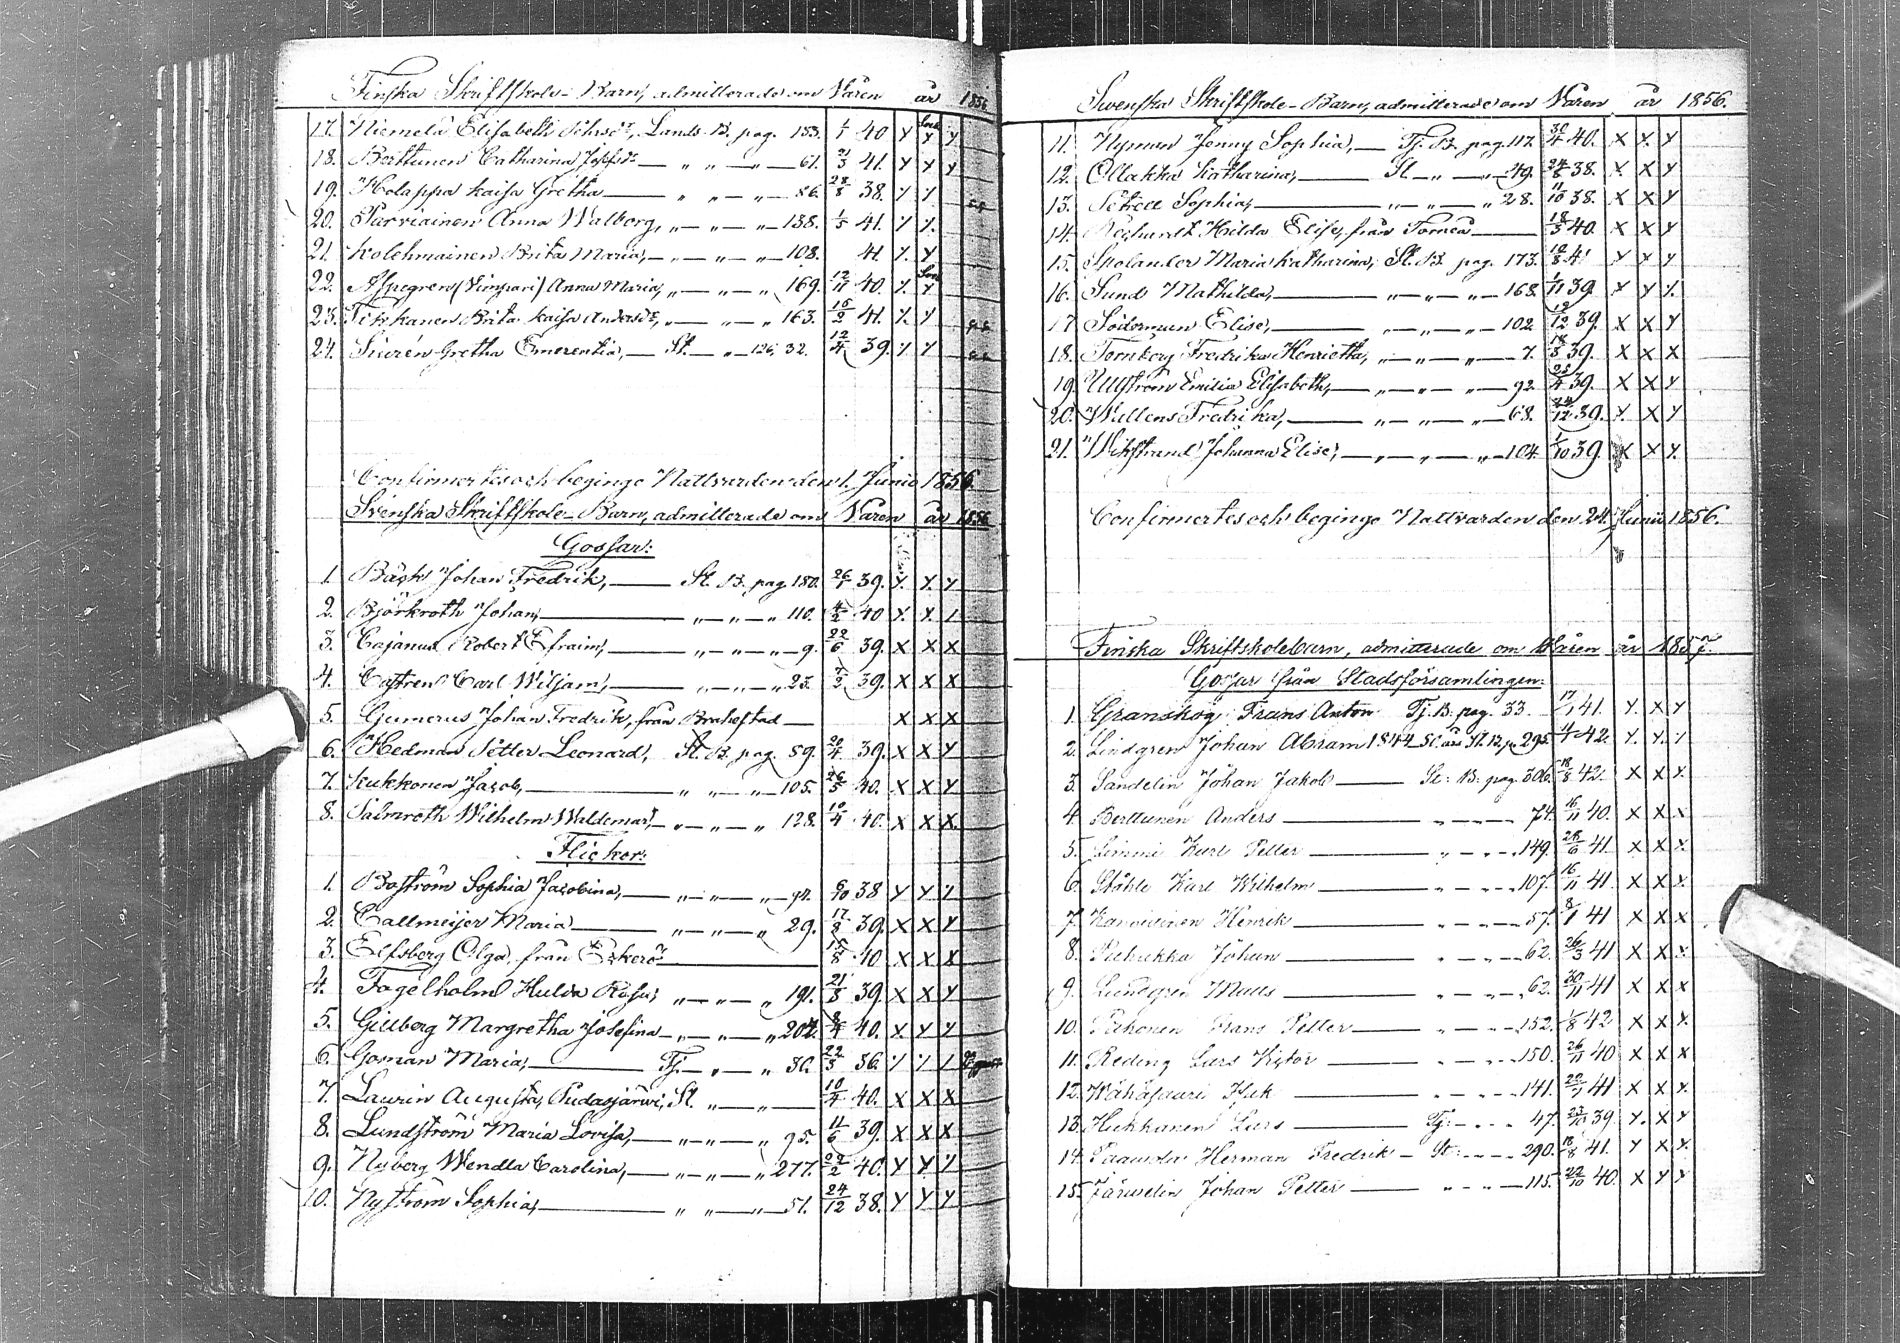 Finska Skriftskole-Barn, admitterade om Våren år 1856
17. Niemelä Elisabeth Lands. B. pag. 183. 1/1 40 Y Y Y.
18. Catharina Josefsdr — „ „ — „ — 61. 21/3 41. Y Y Y
19. Holappa Kaisa Gretha — „ „ — „ — 86. 28/8 38. Y Y
20. Parviainen Anna Walborg, „ — „ — „ — 138. 1/5 41. Y Y.
21. Kolehmainen Brita Maria, — „ — „ — „ — 108. 41. Y. Y
22. Aspegren (Vimpari) Anna Maria, „ — „ — „ 169. 12/11 40. Y. Y
23. Tikkanen Brita Kaisa Andersdr, „ — „ — „ 163. 15/2 41. Y. Y
24. Siurén Gretha Emerentia, — St. — „ 126, 32. 12/4 39. Y Y
Confirmertes och begingo Nattvarden den 1. Junii 1856.
Svenska Skriftskole-Barn, admitterade om Våren år 1856
Gossar:
1. Bäck Johan Fredrik, — St. B. pag. 180. 26/1 39. Y. Y. Y
2. Björkroth Johan, — „ — „ — „ 110. 4/2 40 Y. Y. Y
3. Cajanus Robert Efraim, — „ — „ — „ — 9. 22/6 39. X X X
4. Castren Carl Wiljam, — „ — „ — „ 23. 7/2 39. X X X
5. Gumerus Johan Fredrik, från Brahestad — X X X
6. Hedman Petter Leonard, St. B. pag. 59. 20/4 39. X X Y
7. Kukkonen Jacob, — „ „ — „ — „ 105. 26/5 40. X X Y
8. Salmroth Wilhelm Waldemar, — „ — „ — „ 128. 10/4 40. X X X.
Flickor:
1. Boström Sophia Jacobina, — „ — „ — „ — 94. 6/10 38 Y Y Y
2. Callmeijer Maria — „ — „ — „ 29. 17/8 39. X X Y
3. Elfsberg Olga, från — 15/8 40 X X X
4. Fogelholm Hulda Rosa, „ — „ — „ 191. 21/8 39. X X Y
5. Gillberg Margretha Josefina — „ — „ — „ 204. 8/4 40. X. Y Y
6. Goman Maria, — Tj. — „ — „ 30. 22/3 36. Y Y Y
7. Laurin Augusta, Pudasjärvi, St. „ — „ — 10/4 40. X X X
8. Lundström Maria Lovisa, — „ — „ — „ 95. 11/6 39. X X X
9. Nyberg Wendla Carolina, — „ — „ — „ 277. 29/2 40. Y Y. Y
10. Nyström Sophia, — „ „ — „ — 51. 24/12 38. Y Y Y
Svenska Skriftskole-Barn, admitterade om Våren år 1856.
11. Nyman Jenny Sophia, — Tj. B. pag. 117. 30/4 40. X Y. Y
12. Ollakka Katharina, — St. — „ — „ 49. 24/8 38. X X Y
13. Sophia, — „ — „ — „ 28. 11/10 38. X X Y
14. Hilda Elise, från Torneå — 18/5 40. X X Y
15. Spolander Maria Katharina, St. B. pag. 173. 10/8 41 Y Y Y
16. Sund Mathilda, — „ — „ — 168. 1/11 39. Y Y Y.
17 Söderman Elise, — „ — „ — „ 102. 12/12 39. X X Y
18. Tornberg Fredrika Henrietta, „ — „ — „ 7. 18/8 39. X X X
19. Ullström Emilia Elisabeth, — „ — „ — 92. 28/4 39. X X Y
20. Wallens Fredrika, — „ — „ — 68. 24/12 39. Y. X Y
21. Wikstrand Johanna Elise, — „ — „ — „ 104. 1/10 39. X X Y.
Confirmertes och begingo Nattvarden den 24. Junii 1856.
Finska Skriftskolebarn, admitterade om Våren år 1857.
Gossar från Stadsförsamlingen.
1. Granskog Frans Anton Tj. B. pag. 33. 17/1 41. Y. X Y
2. Lindgren Johan Abram 1844 St. B. p. 295. 4/4 42. Y. Y. Y
3. Sandelin Johan Jakob — St. B. pag. 306. 18/8 42. X X Y
4. Berttunen Anders — „ — „ — 74. 16/11 40. X X X
5. Limmi Karl Petter — „ — „ — „ 149. 28/6 41. X X X
6. Ståhle Karl Wilhelm — „ — „ — „ 107. 16/11 41. X X X
7. Henrik — „ — „ — „ 57. 8/1 41 X X X
8. Johan — „ — „ — „ 62. 26/3 41 X X X
9. Lundgren Matts — „ — „ — „ 62. 30/11 41 X X X
10. Frans Petter — „ — „ — „ 152. 1/8 42 X X X
11. Reding Lars Viktor — „ — „ — „ 150. 26/11 40 X X X
12. Wähäsaari Isak — „ — „ — „ 141. 20/4 41 X X X
13. Hukkanen Lars — Tj. — „ — 47. 23/10 39 Y. X Y
14. Herman Fredrik — St. — „ — „ 290. 18/8 41. Y X X
15. Järvelin Johan Petter — „ — „ — 115. 22/10 40. X Y Y